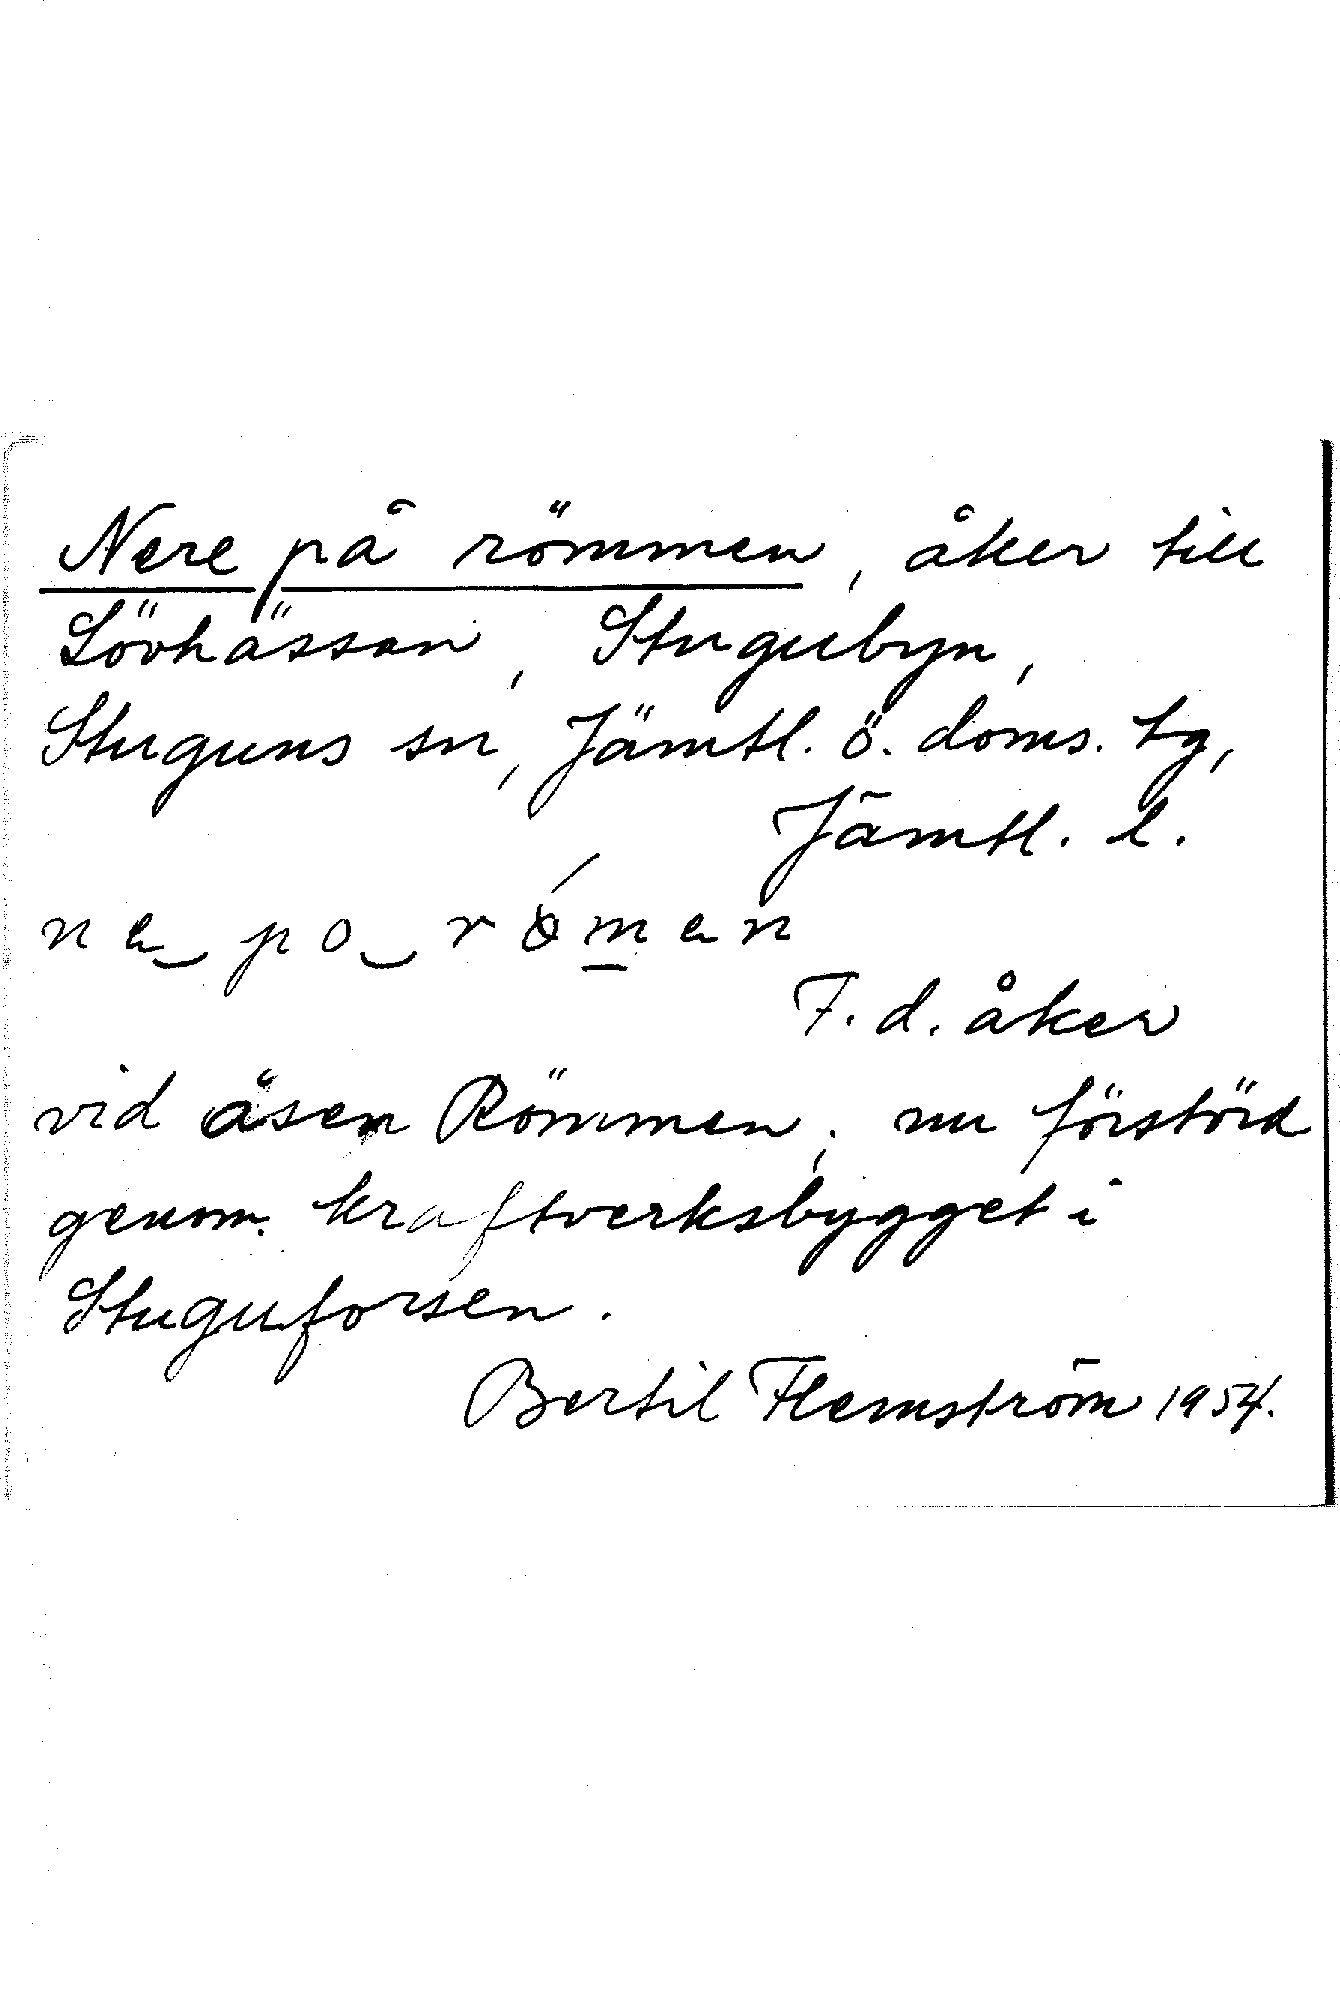 Nere på römmen, åker till
Lövhässan, Stugubyn,
Stuguns sn, Jämtl. ö. doms. tg,
Jämtl. l.
ne‿ po‿ róm̲en
F. d. åker
vid åsen Römmen; nu förstörd
genom kraftverksbygget i
Stuguforsen.
Bertil Flemström 1954.